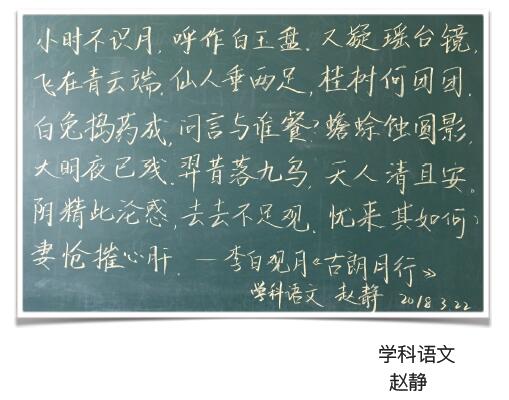 小时不识月，呼作白玉盘。又疑瑶台镜，
飞在青云端。仙人垂两足，桂树何团团。
白兔捣药成，问言与谁餐？蟾蜍蚀圆影，
大明夜已残。羿昔落九乌，天人清且安。
阴精此沦惑，去去不足观。忧来其如何？
妻怆摧心肝。—李白观月《古朗月行》
学科语文 赵静 2018 3.22
学科语文
赵静